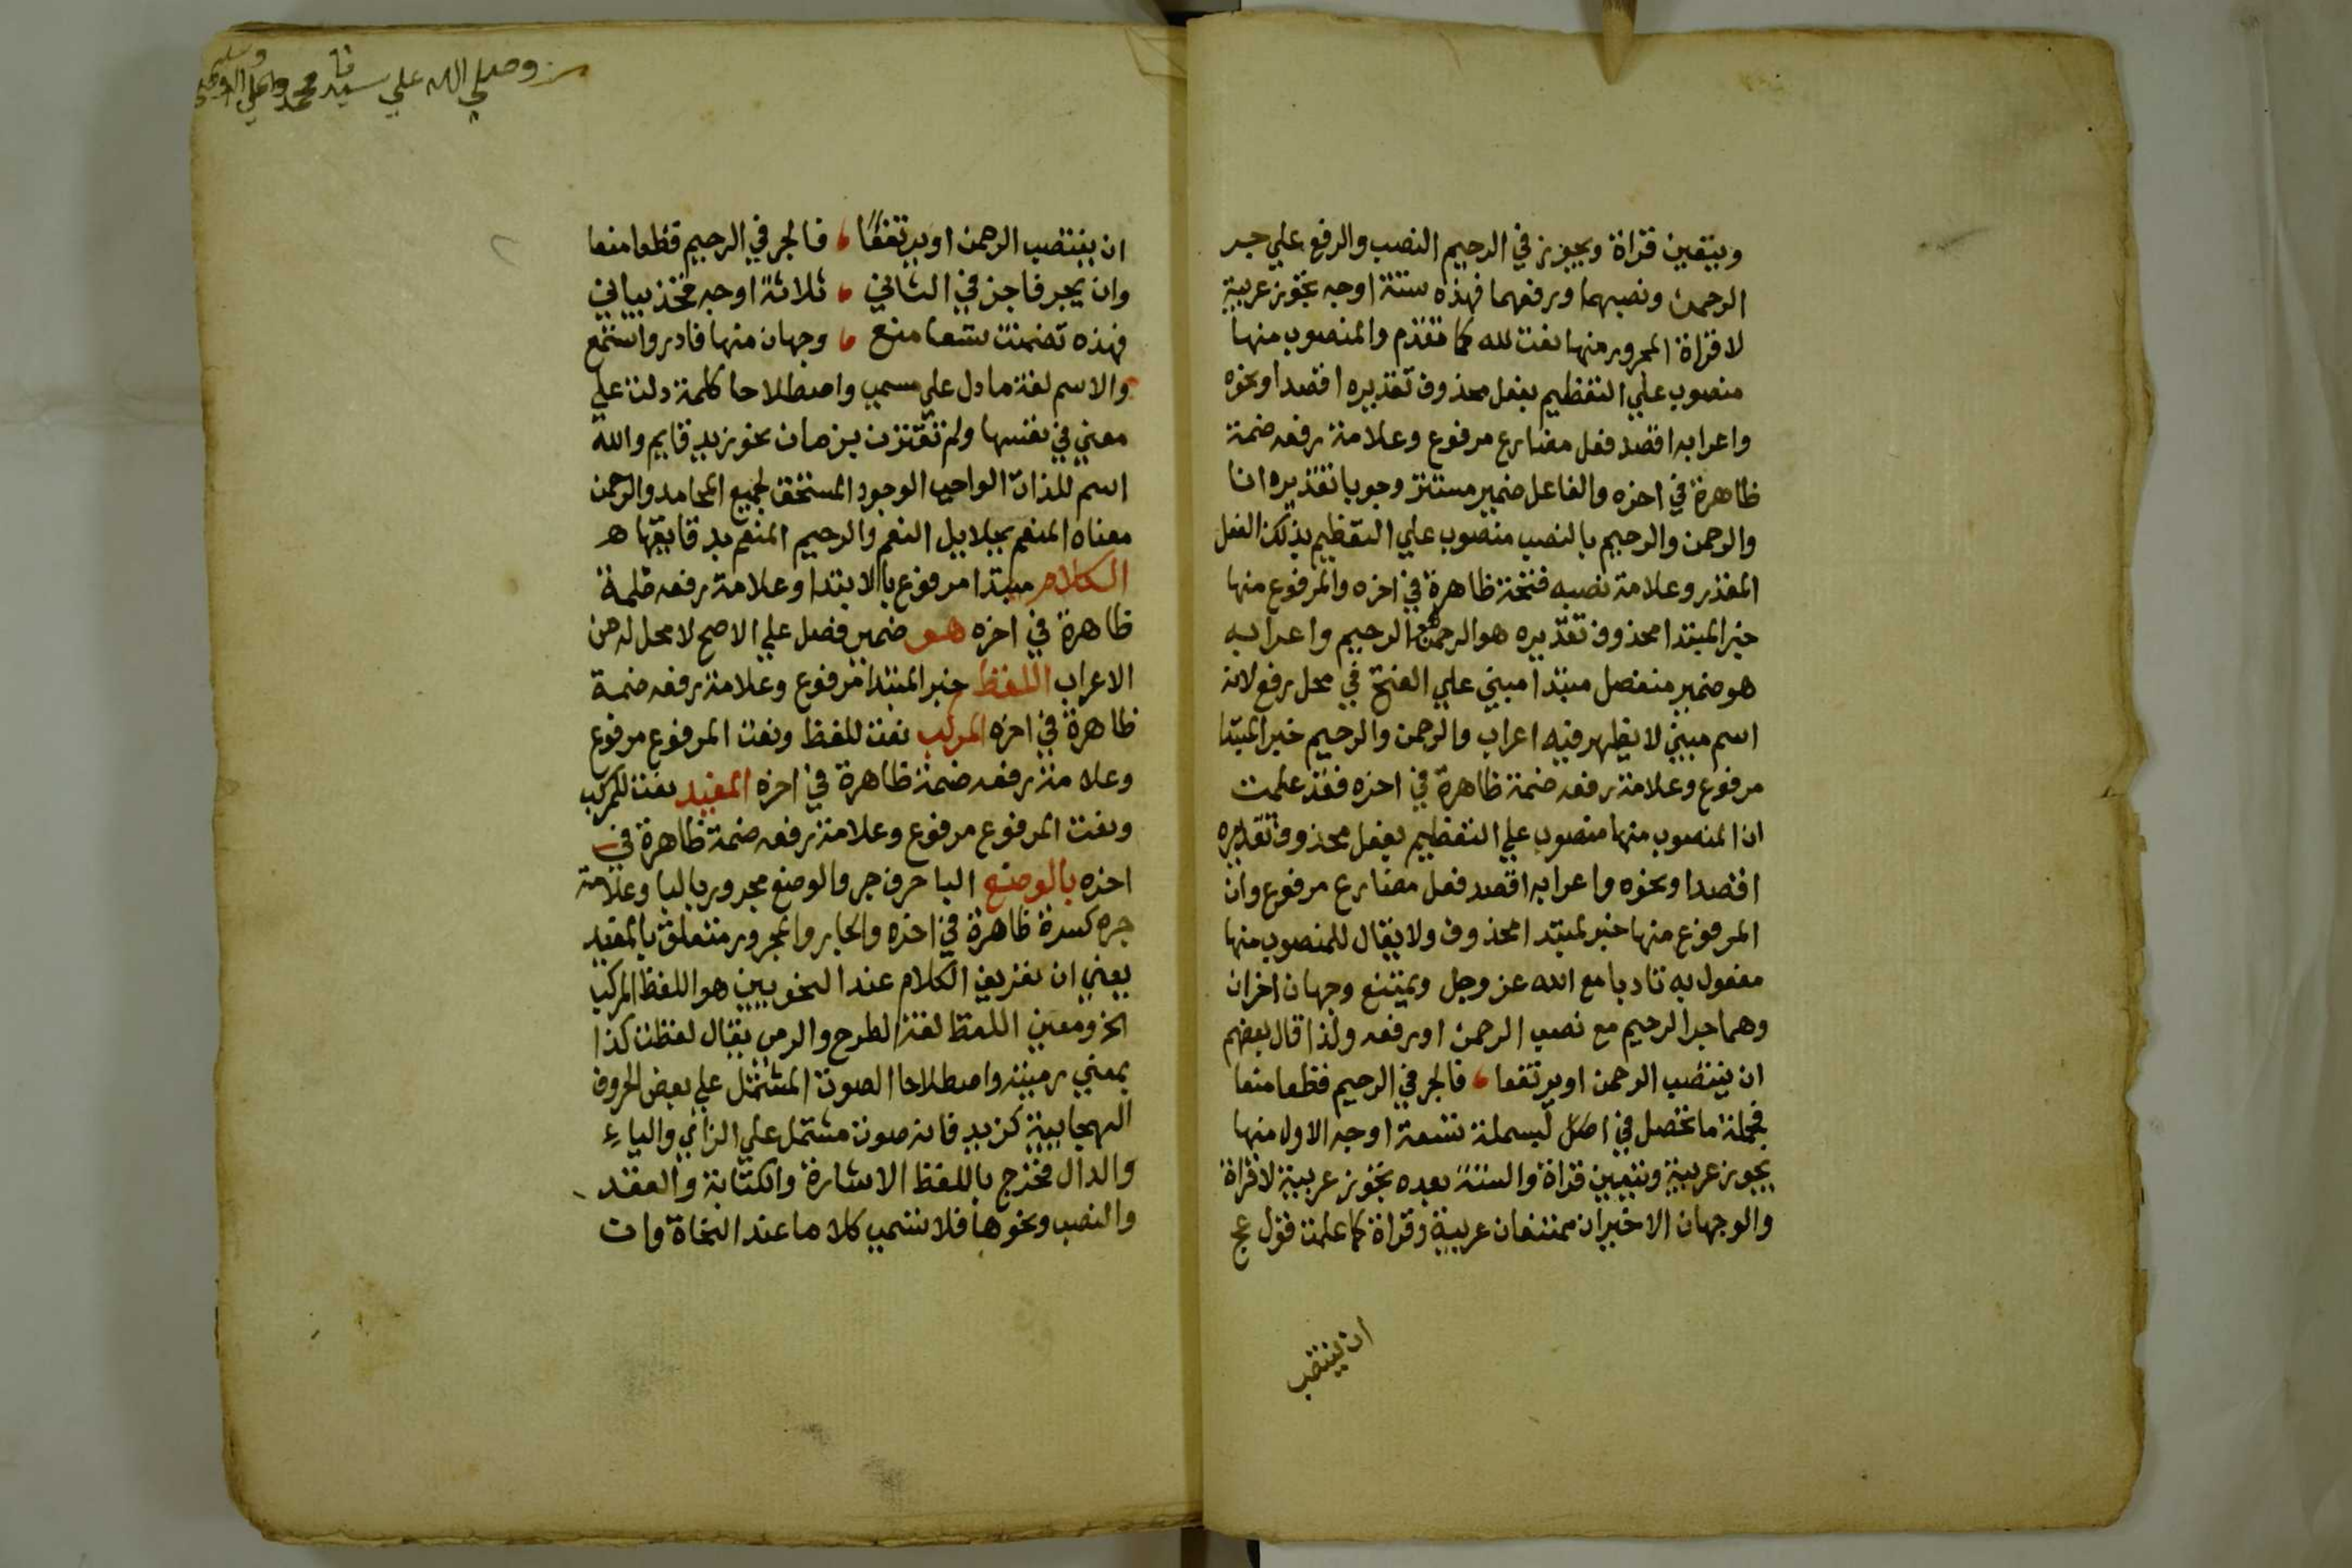 ويتقين قراة ويجوز في الرحيم النصب والرفع علي جر
الرحمن ونصبهما ورفعهما فهذه ستة اوجه تجوز عربية
لا قراة المجرور منها نعت لله كما تقدم والمنصوب منها
منصوب علي التعظيم بفعل محذوف تقديره اقصد او نحوه
واعرابه اقصد فعل مضارع مرفوع وعلامة رفعه ضمة
ظاهرة في اخره والفاعل ضمير مستتر وجوبا تقديره انا
والرحمن والرحيم بالنصب منصوب علي التعظيم بذلك الفعل
المقدر وعلامة نصبه فتحة ظاهرة في اخره والمرفوع منها
خبر المبتدا محذوف تقديره هو الرحمن الرحيم واعرابه
هو ضمير منفصل مبتدا مبني علي الفتح في محل رفع لانه
اسم مبني لا يظهر فيه اعراب والرحمن والرحيم خبر المبتدا
مرفوع وعلامة رفعه ضمة ظاهرة في اخره فقد علمت
ان المنصوب منها منصوب علي التعظيم بفعل محذوف تقديره
اقصد او نحوه واعرابه اقصد فعل مضارع مرفوع وان
المرفوع منها خبر لمبتدا محذوف ولا يقال للمنصوب منها
مفعول به تادبا مع الله عز وجل ويمتنع وجهان اخران
وهما جر الرحيم مع نصب الرحمن او رفعه ولذا قال بعضهم
ان ينتصب الرحمن او يرتفعا فالجر في الرحيم قطعا منعا
فجملة ما تحصل في البسملة تسعة اوجه الاول منها
يجوز عربية ويتعين قراة والستة بعده تجوز عربية لا قراة
والوجهان الاخيران ممتنعان عربية وقراة كما علمت قول عج
ان ينتصب
وصلي الله علي سيدنا محمد وعلي اله
ان ينتصب الرحمن او يرتفعا فالجر في الرحيم قطعا منعا
وان يجر فاجز في الثاني ثلاثة اوجه فخذ بياني
فهذه تضمنت تسعا منع وجهان منها فادر واستمع
والاسم لغة ما دل علي مسمي واصطلاحا كلمة دلت علي
معني في نفسها ولم تقترن بزمان نحو زيد قايم والله
اسم للذات الواجب الوجود المستحق لجميع المحامد والرحمن
معناه المنعم بجلايل النعم والرحيم المنعم بدقايقها ه
الكلام مبتدا مرفوع بالابتدا وعلامة رفعه ضمة
ظاهرة في اخره هو ضمير فصل علي الاصح لا محل له من
الاعراب اللفظ خبر المبتدا مرفوع وعلامة رفعه ضمة
ظاهرة في اخره المركب نعت للفظ ونعت المرفوع مرفوع
وعلامة رفعه ضمة ظاهرة في اخره المفيد نعت للمركب
ونعت المرفوع مرفوع وعلامة رفعه ضمة ظاهرة في
اخره بالوضع البا حرف جر والوضع مجرور بالبا وعلامة
جره كسرة ظاهرة في اخره والجار والمجرور متعلق بالمفيد
يعني ان تعريف الكلام عند النحويين هو اللفظ المركب
الخ ومعني اللفظ لغة الطرح والرمي يقال لفظت كذا
بمعني رميته واصطلاحا الصوت المشتمل علي بعض الحروف
الهجايية كزيد فانه صوت مشتمل علي الزاي والياء
والدال فخرج باللفظ الاشارة والكتابة والعقد
والنصب ونحوها فلا تسمي كلاما عند النحاة وان